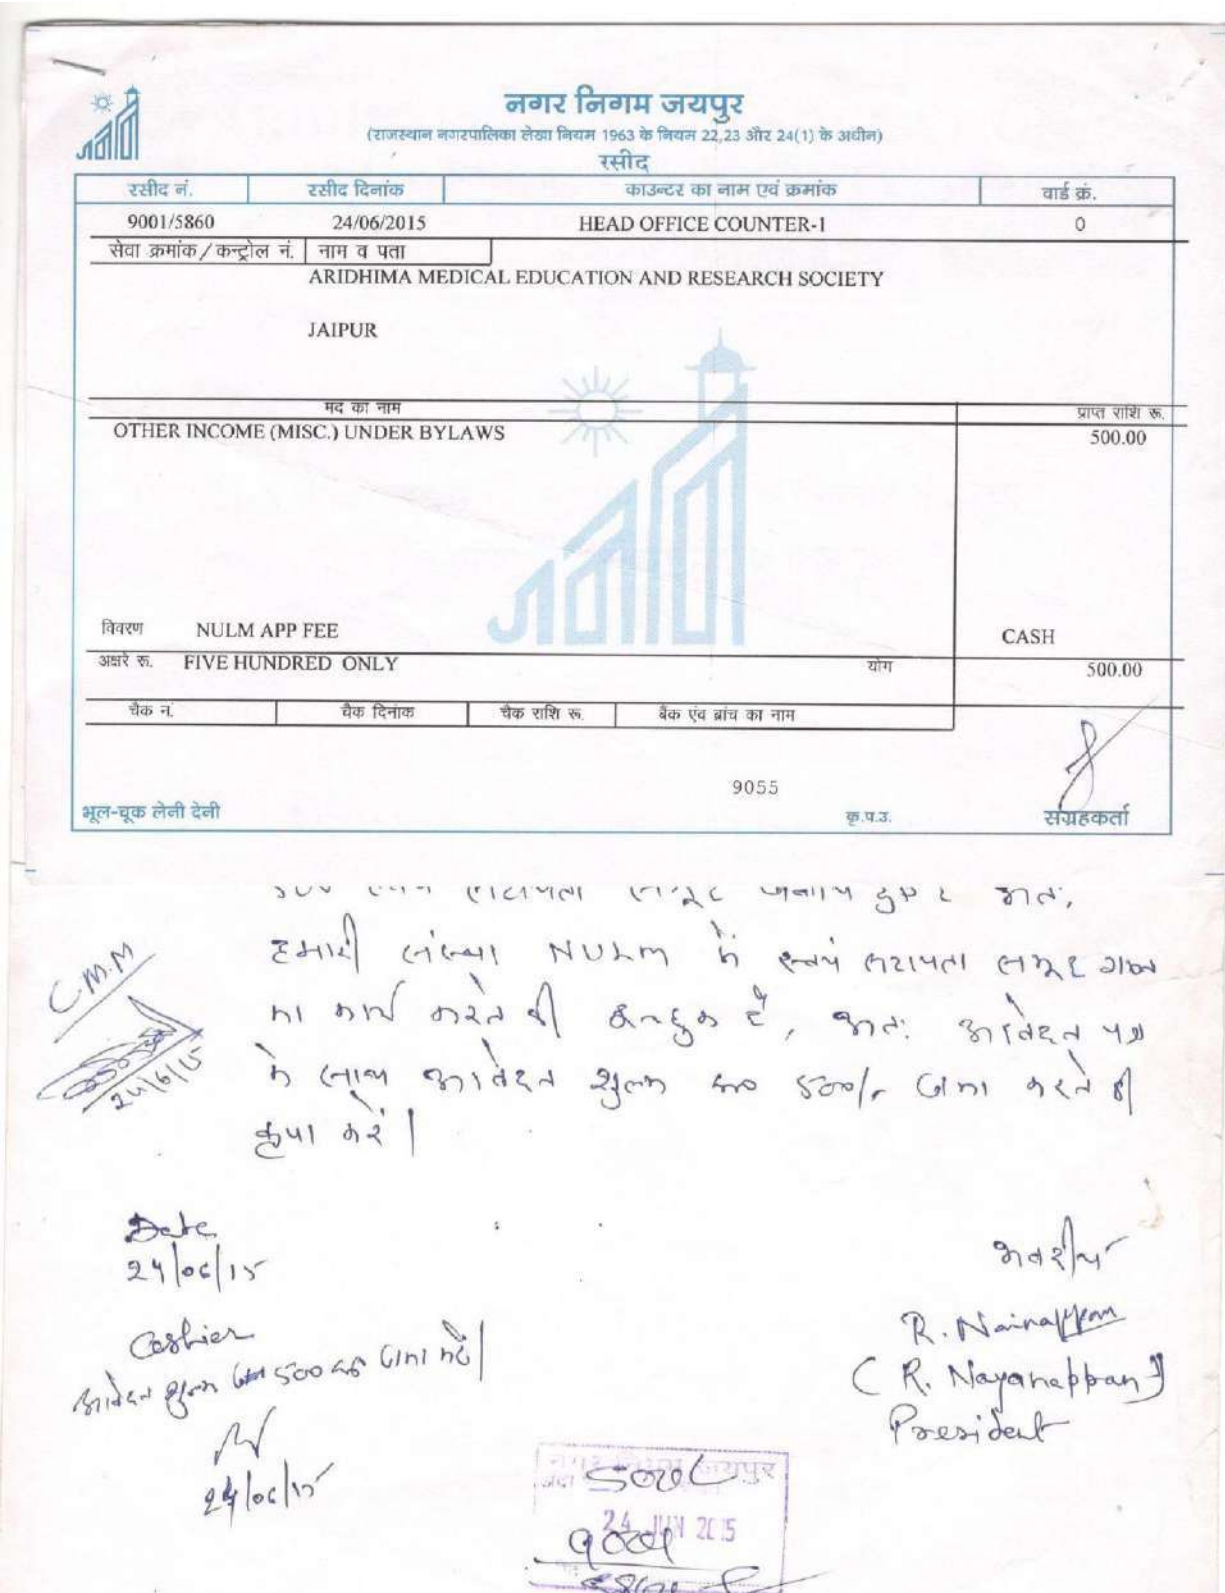 नगर निगम जयपुर
(राजस्थान नगरपालिका लेखा नियम 1963 के नियम 22,23 और 24(1) के अधीन)
रसीद
रसीद नं. रसीद दिनांक काउन्टर का नाम एवं क्रमांक वार्ड क्रं.
9001/5860 24/06/2015 HEAD OFFICE COUNTER-1 0
सेवा क्रमांक/कन्ट्रोल नं. नाम व पता
ARIDHIMA MEDICAL EDUCATION AND RESEARCH SOCIETY
JAIPUR
मद का नाम प्राप्त राशि रू.
OTHER INCOME (MISC.) UNDER BYLAWS 500.00
विवरण NULM APP FEE CASH
अक्षरे रू. FIVE HUNDRED ONLY योग 500.00
चैक नं. चैक दिनांक चैक राशि रू. बैंक एंव ब्रांच का नाम
9055
भूल-चूक लेनी देनी कृ.प.उ. संग्रहकर्ता
अतः
C.M.M हमारी संस्था NULM में स्वयं सहायता समूह गठन
का कार्य करने की इच्छुक है, अतः आवेदन पत्र
24/6/15 के साथ आवेदन शुल्क रू0 500/- जमा करने की
कृपा करें।
Date
24/06/15
भवदीय
R. Nainappan
Cashier
(R. Nayanappan)
आवेदन शुल्क 500 रू0 जमा करें।
President
24/06/15
नगर निगम जयपुर
24 JUN 2015